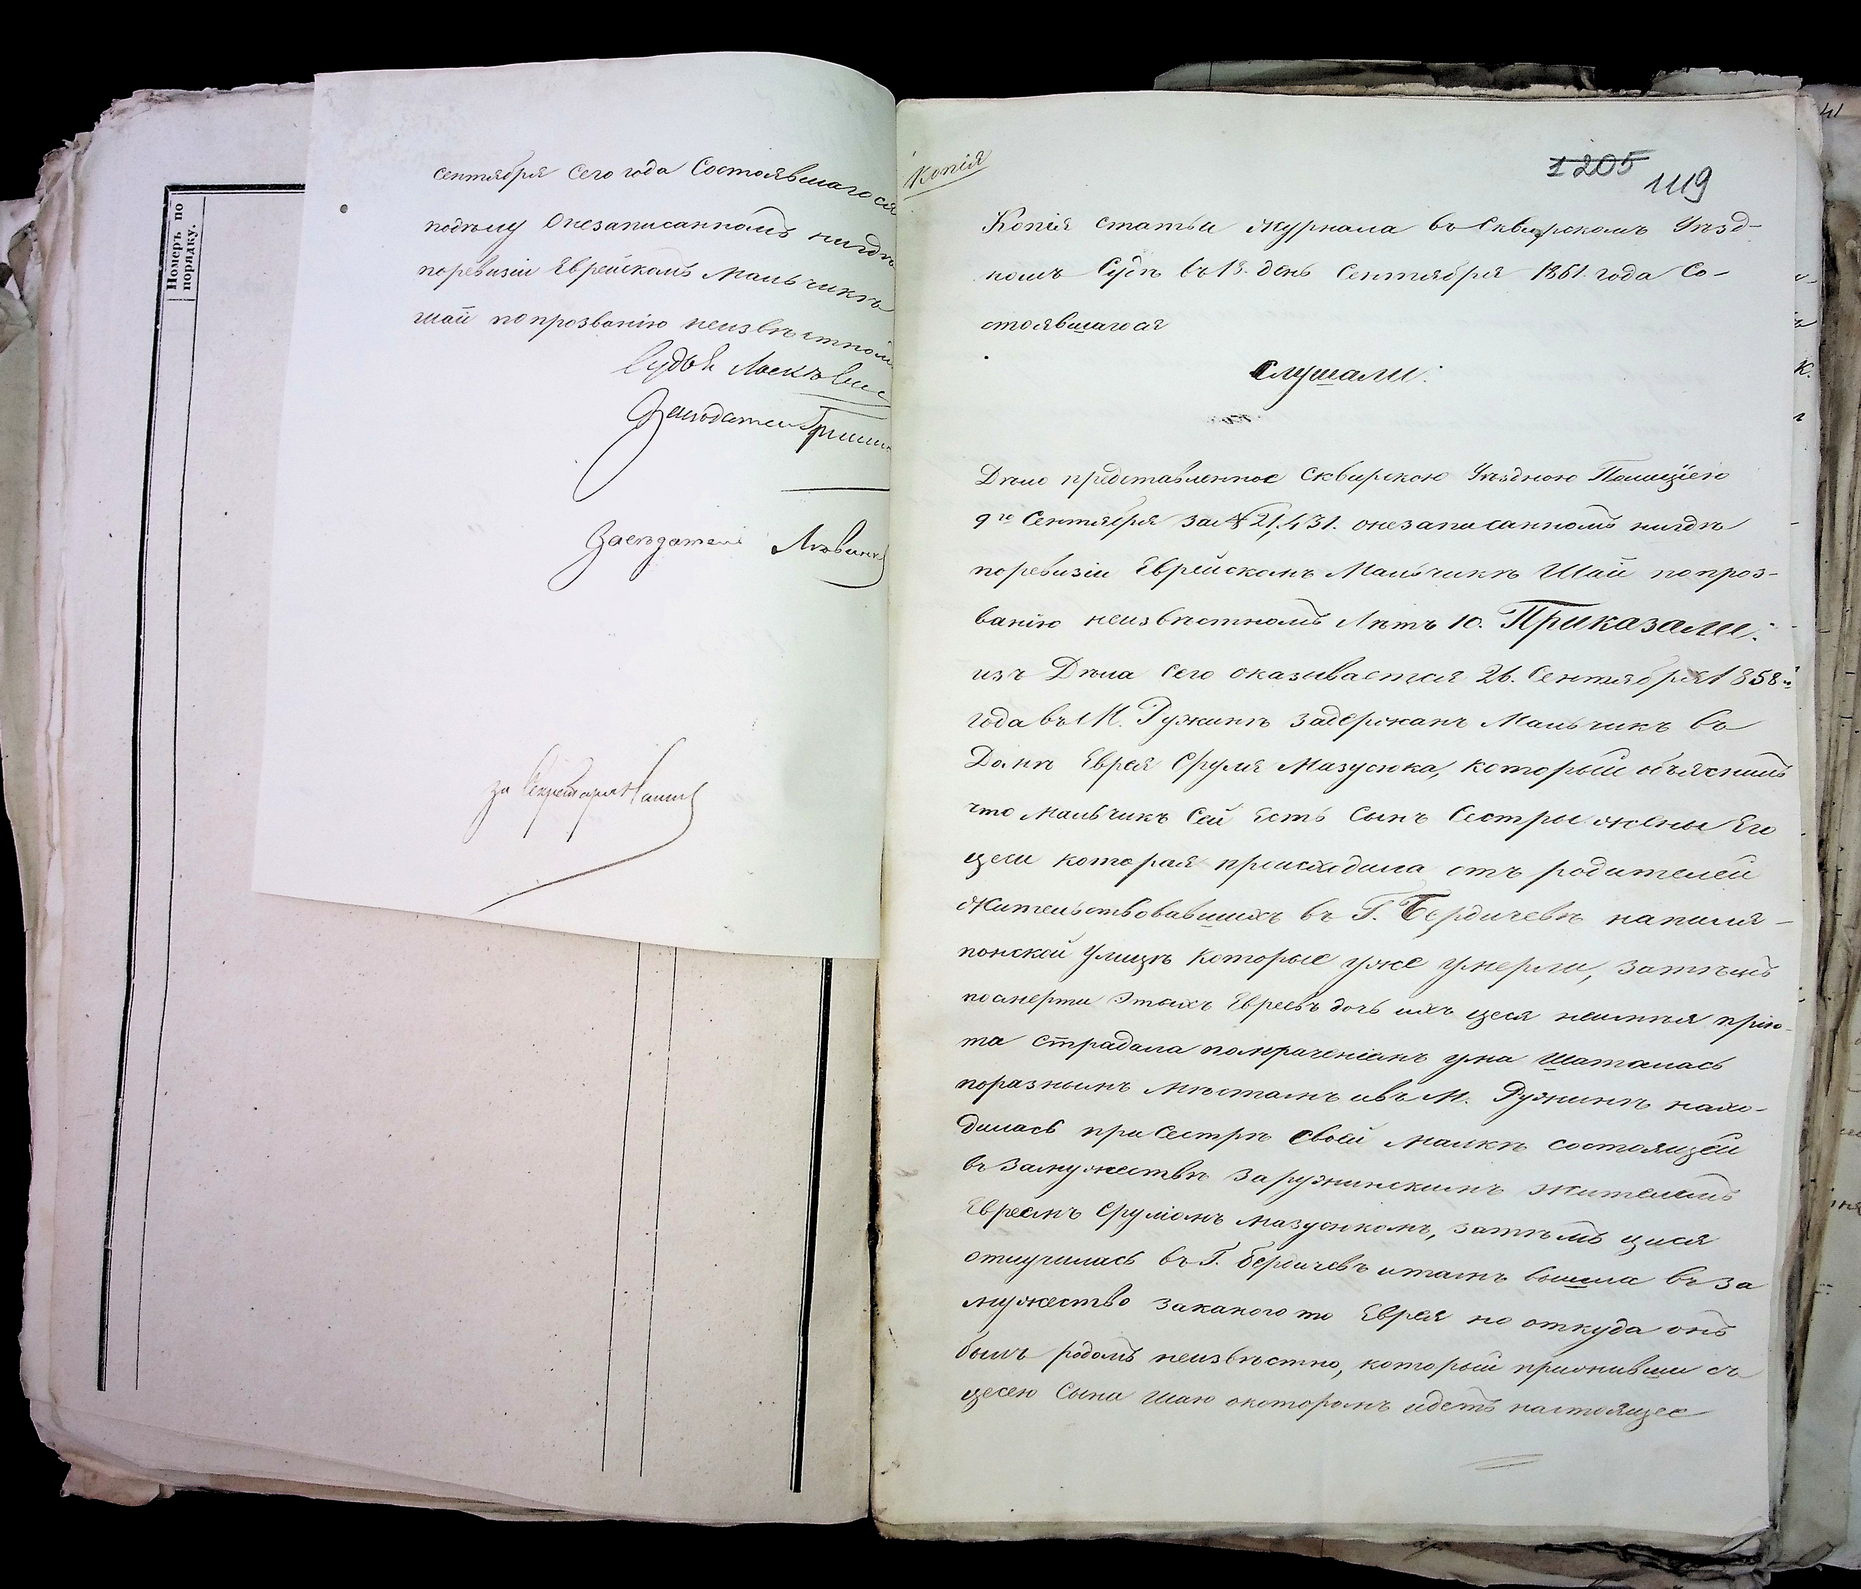 Номеръ по
порядку.
сентября сего года Состоявшагося
подѣлу Онезаписанномъ нигдѣ
поревизіи Еврейскомъ Мальчикѣ
шаи попрозванію неизвѣстном
Судья
Засѣдатель
Засѣдатель
за Секретаря
Копія
1205
1119
Копія статьи журнала въ Сквирскомъ Уѣзд-
номъ Судѣ въ 13. день Сентября 1861 года Со-
стоявшагося
Слушали:
Дѣло представленное Сквирскою Уѣздною Полиціею
9го Сентября за № 21,431. онезаписанномъ нигдѣ
поревизіи Еврейскомъ Мальчикѣ Шаи попроз-
ванію неизвѣстномъ Лѣтъ 10. Приказали:
изъ Дѣла сего оказывается 26. Сентября 1858
года въ М. Ружинѣ задержанъ Мальчикъ въ
Домѣ Еврея Сруля Мазусюка, который объяснилъ
что мальчикъ Сей Есть Сынъ Сестры жены Его
цеси которая происходила отъ родителей
жительствовавшихъ въ Г. Бердичевѣ напиля-
понской улицѣ которые уже умерли, затѣмъ
посмерти Этихъ Евреевъ дочь ихъ цеся неимѣя прию-
та страдала помраченіемъ ума шаталась
поразнымъ мѣстамъ ивъ М. Ружинѣ нахо-
дилась при Сестрѣ своей малкѣ состоящей
въ Замужествѣ заружинскимъ жителемъ
Евреемъ Сруліомъ мазусюкомъ, затѣмъ цися
отлучилась въ Г. Бердичевъ итамъ вышла въ за
мужество закакого то Еврея но откуда онъ
былъ родомъ неизвѣстно, который приживши съ
цесею Сына шаю окоторомъ идетъ настоящее